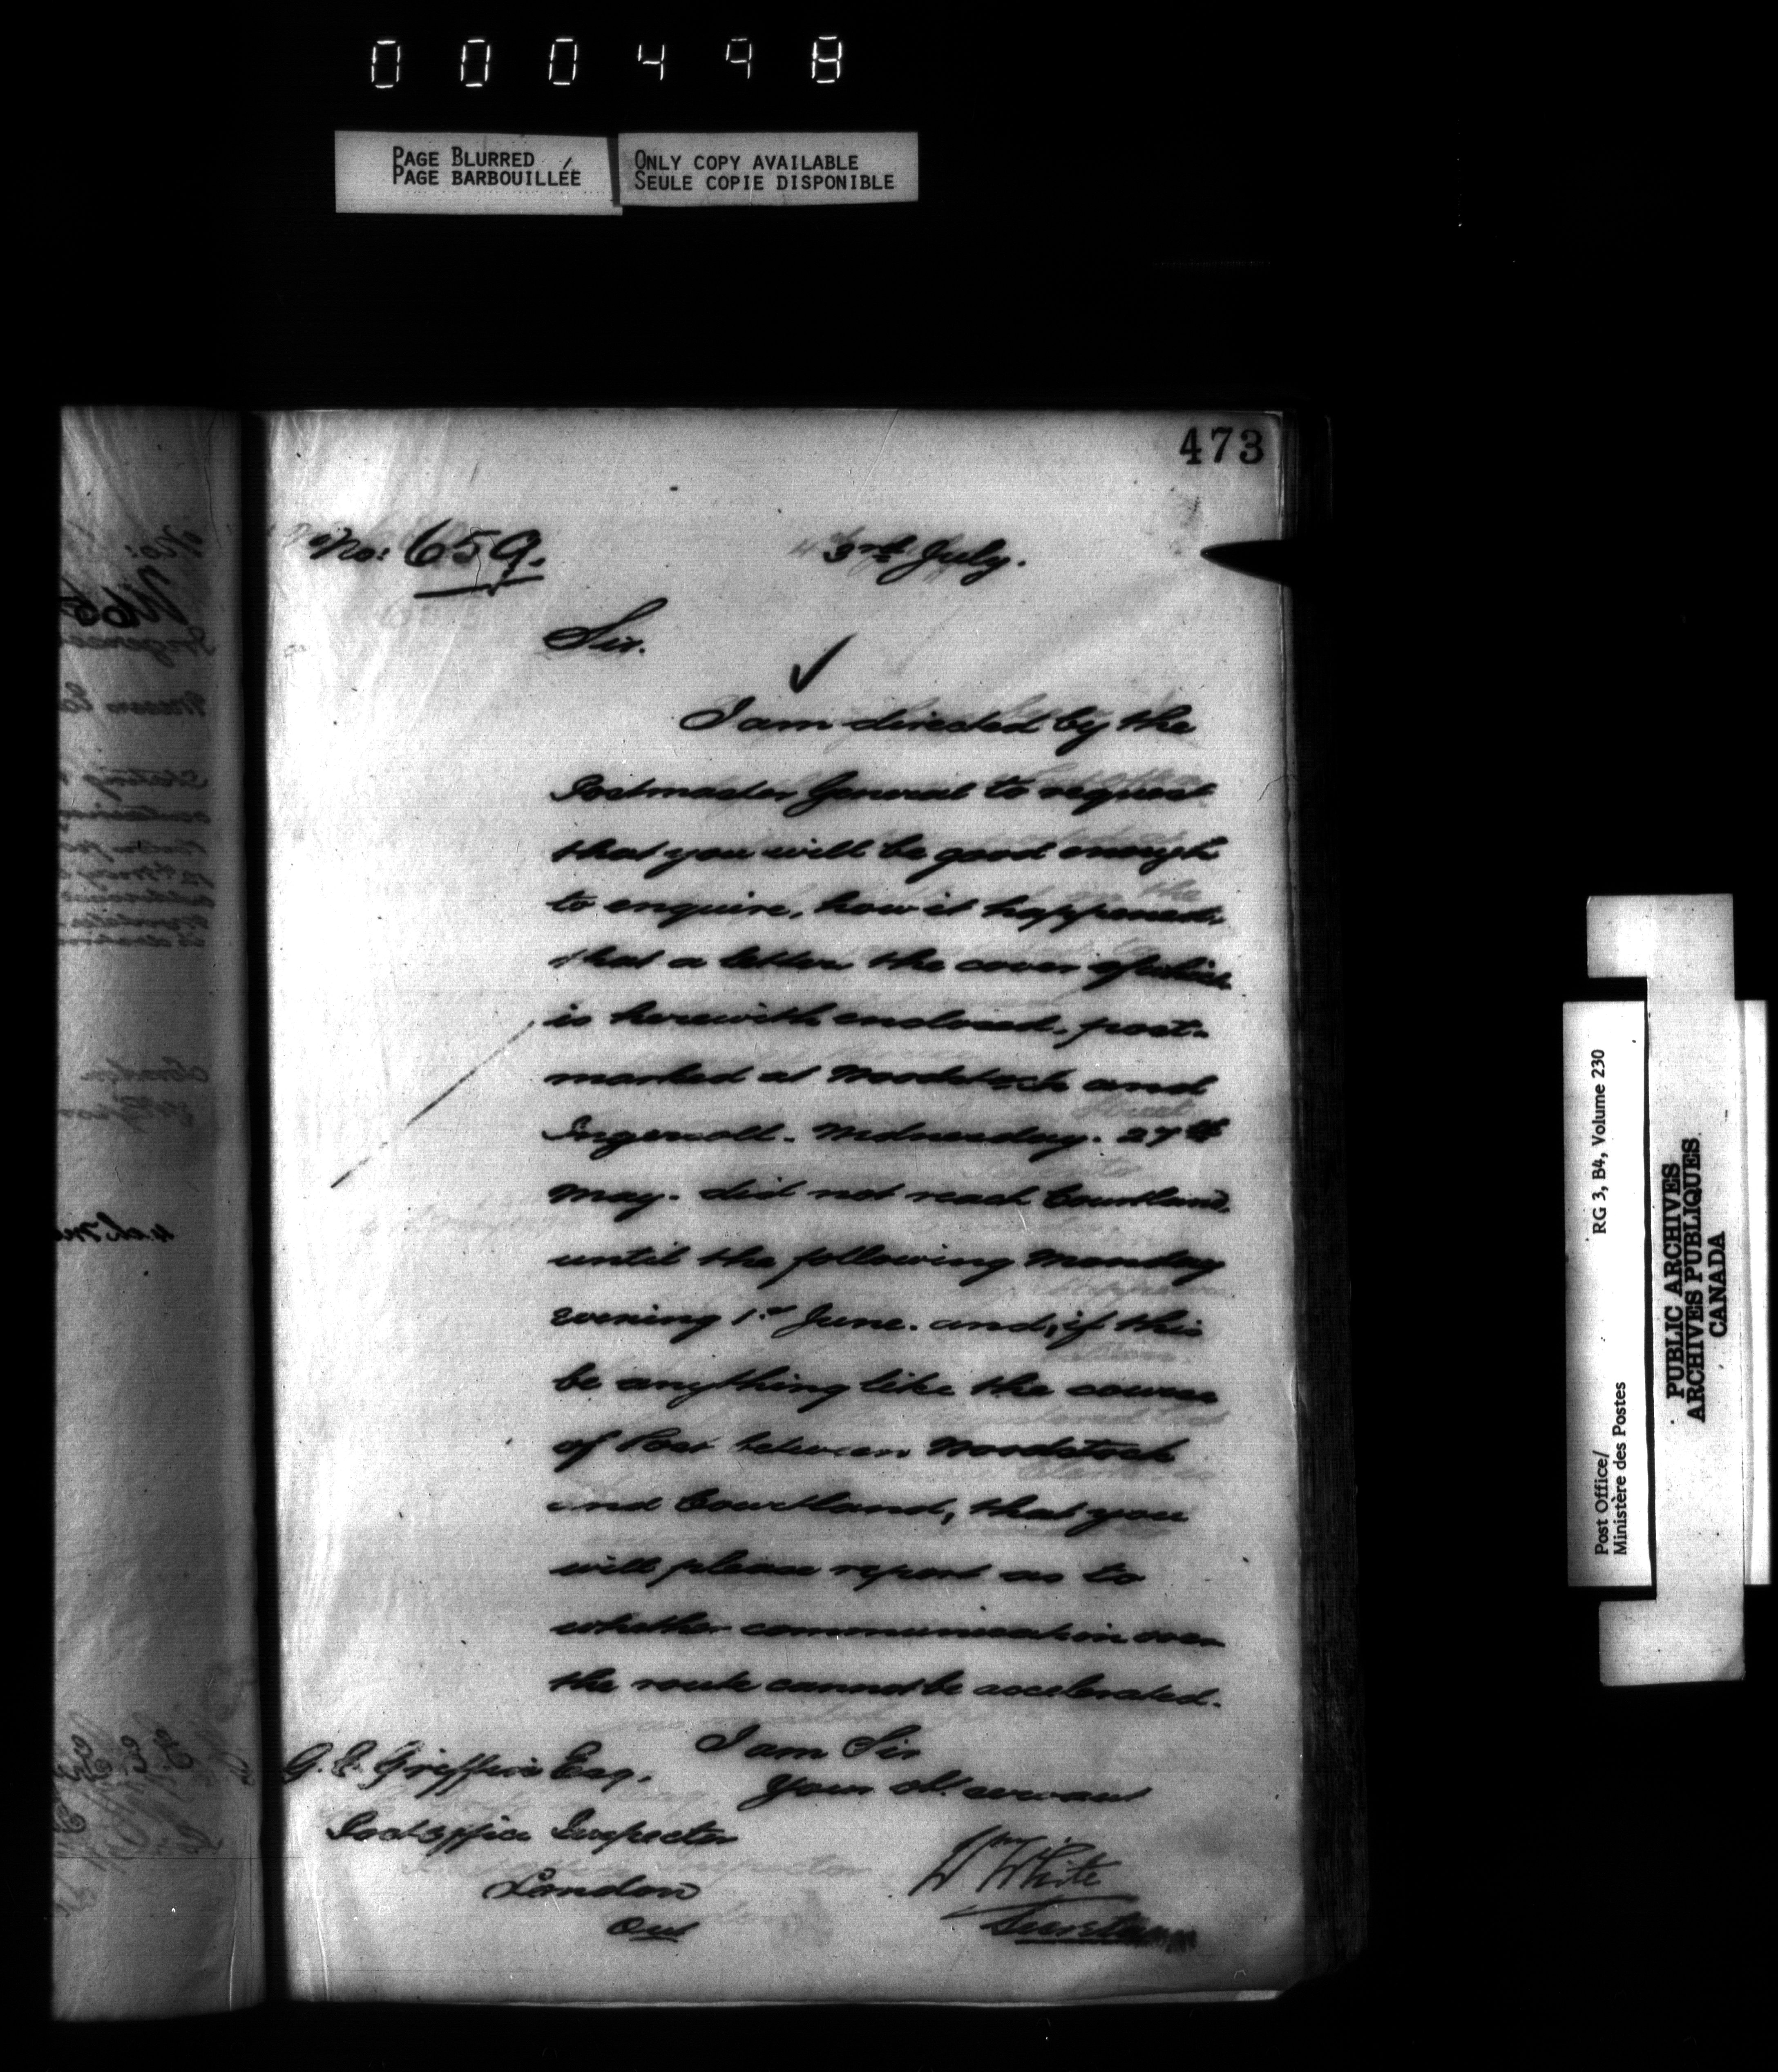 000498
PAGE BLURRED
PAGE BARBOUILLÉE
ONLY COPY AVAILABLE
SEULE COPIE DISPONIBLE
473
No: 659.
3rd July.
Sir.
I am directed by the
Postmaster General to request
that you will be good enough
to enquire, how it happened,
that a letter the cover of which
is herewith enclosed, post-
marked at Woodstock and
Ingersoll. Wednesday. 27th
May. did not reach Courtland,
until the following Monday
evening 1st June. and, if this
be anything like the course
of Post between Woodstock
and Courtland, that you
will please report as to
whether communication over
the route cannot be accelerated.
I am Sir
Your ob. servant
G. E. Griffin Esq.
Post Office Inspector
London
Ont
W White
Secretary
Post Office/
Ministère des Postes
RG 3, B4, Volume 230
PUBLIC ARCHIVES
ARCHIVES PUBLIQUES
CANADA